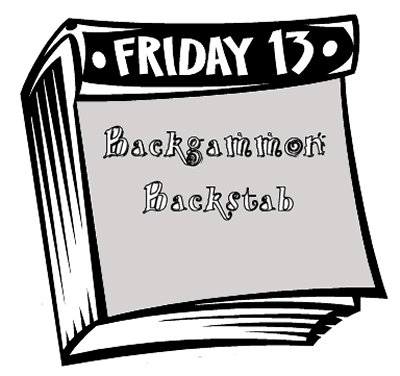 FRIDAY 13
Backgammon
Backstab